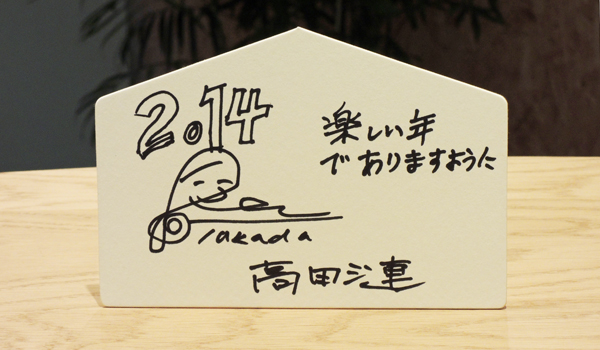 2.14
楽しい年
でありますように
Takada
高田ジ連